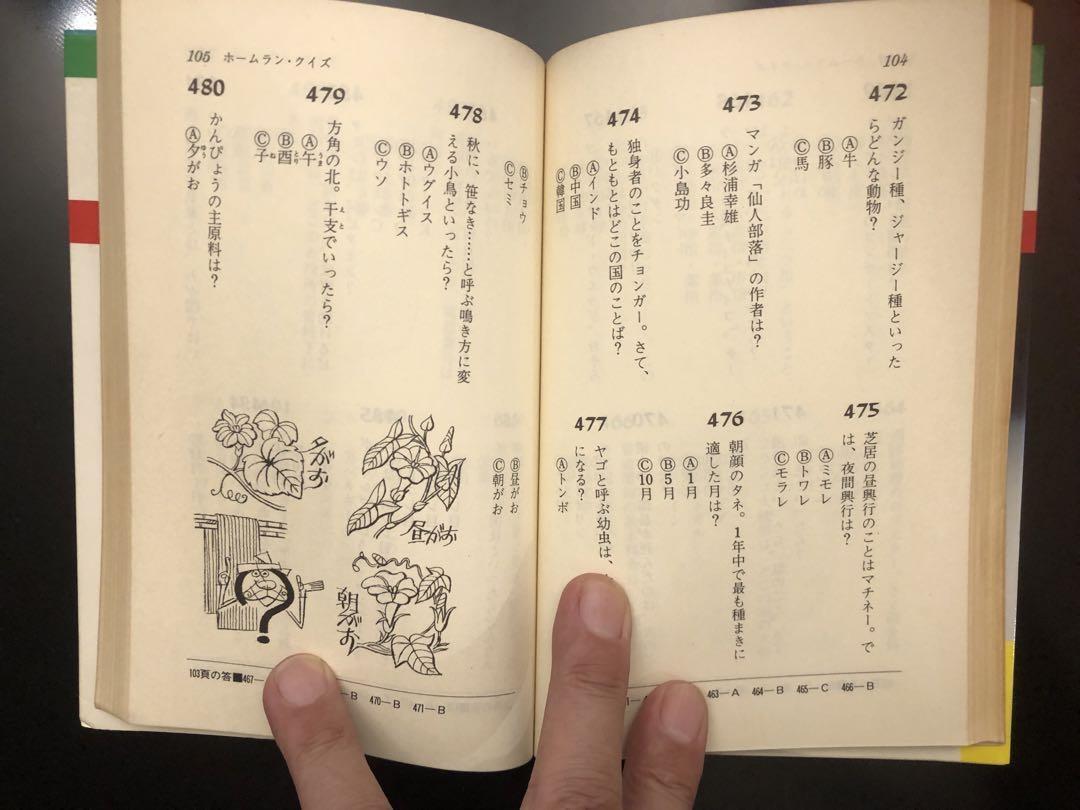 104
472
ガンジー種、ジャージー種といった
らどんな動物？
Ⓐ牛
Ⓑ豚
Ⓒ馬
473
マンガ「仙人部落」の作者は？
Ⓐ杉浦幸雄
Ⓑ多々良圭
Ⓒ小島功
474
独身者のことをチョンガー。さて、
もともとはどこの国のことば？
Ⓐインド
Ⓑ中国
Ⓒ韓国
475
芝居の昼興行のことはマチネー。で
は、夜間興行は？
Ⓐミモレ
Ⓑトワレ
Ⓒモラレ
476
朝顔のタネ。1年中で最も種まきに
適した月は？
Ⓐ1月
Ⓑ5月
Ⓒ10月
477
ヤゴと呼ぶ幼虫は、
になる？
Ⓐトンボ
463―A 464―B 465―C 466―B
105 ホームラン・クイズ
Ⓑチョウ
Ⓒセミ
478
秋に、笹なき……と呼ぶ鳴き方に変
える小鳥といったら？
Ⓐウグイス
Ⓑホトトギス
Ⓒウソ
479
方角の北。干支でいったら？
えと
Ⓐ午
うま
Ⓑ酉
とり
Ⓒ子
ね
480
かんぴょうの主原料は？
Ⓐ夕がお
ゆう
Ⓑ昼がお
Ⓒ朝がお
夕がお
昼がお
朝がお
?
103頁の答■467―
―B 470―B 471―B